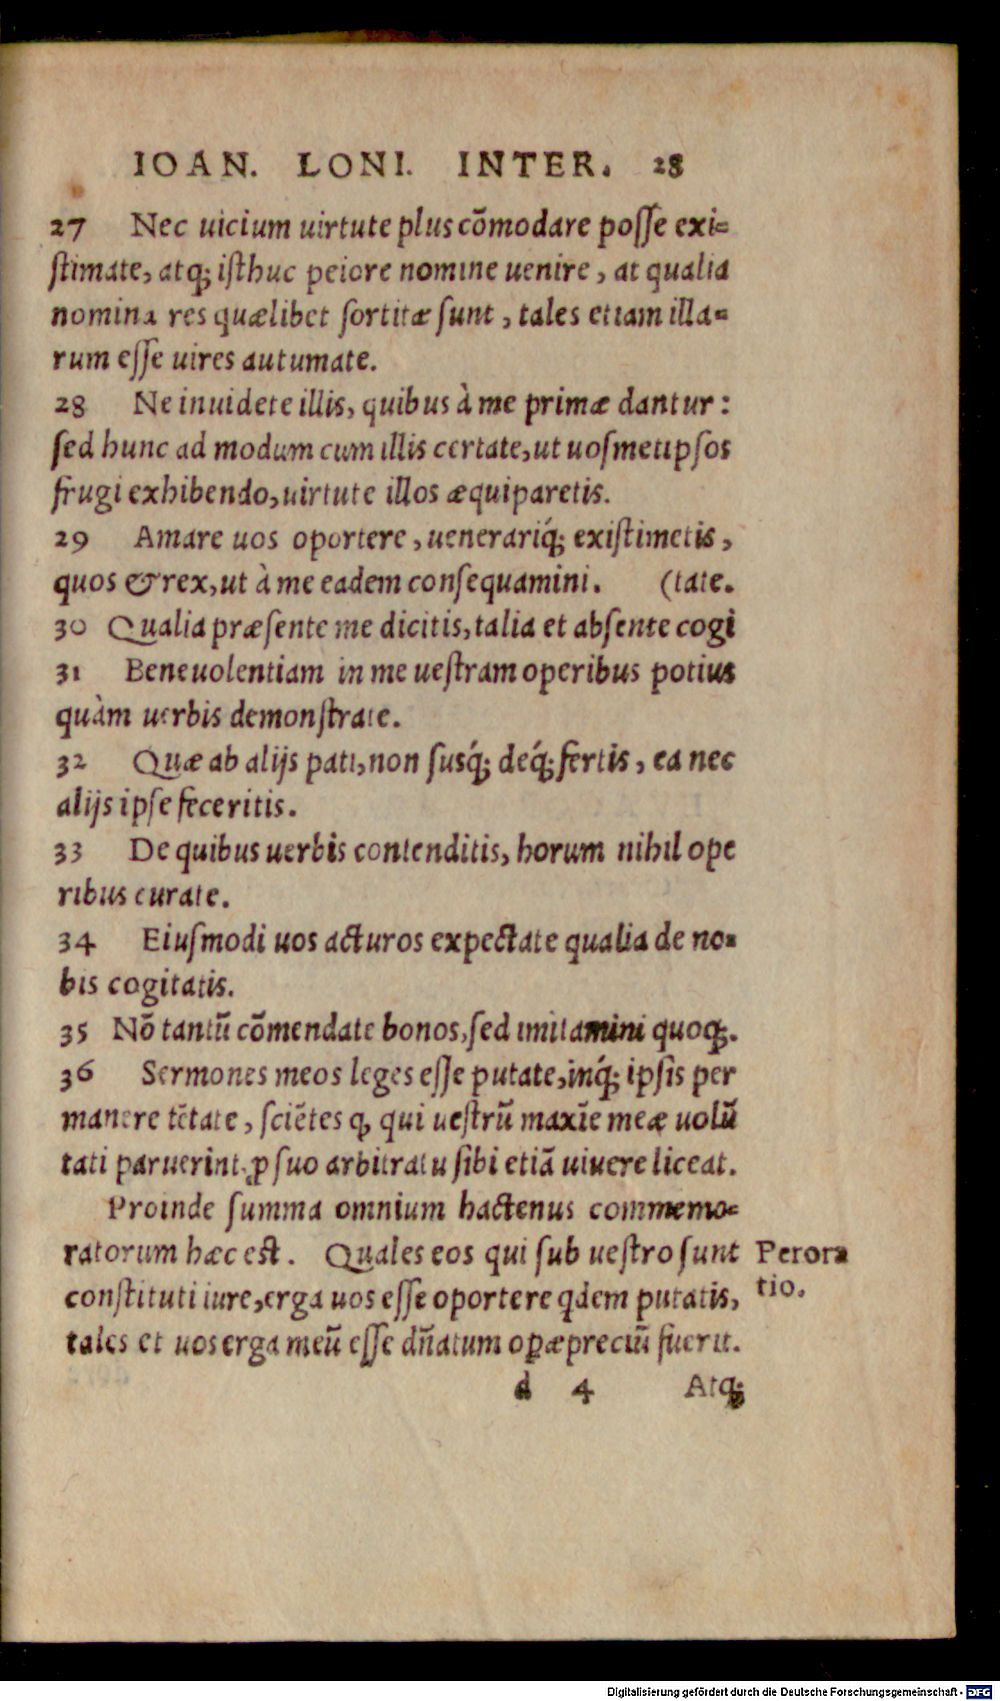 IOAN. LONI. INTER. 28
27 Nec uicium uirtute plus cõmodare posse exi-
stimate, atq; isthuc peiore nomine uenire, at qualia
nomina res quælibet sortitæ sunt, tales etiam illa-
rum esse uires autumate.
28 Ne inuidete illis, quibus à me primæ dantur:
sed hunc ad modum cum illis certate, ut uosmetipsos
frugi exhibendo, uirtute illos æquiparetis.
29 Amare uos oportere, uenerariq́; existimetis,
quos & rex, ut à me eadem consequamini. (tate.
30 Qualia præsente me dicitis, talia et absente cogi
31 Beneuolentiam in me uestram operibus potius
quàm uerbis demonstrate.
32 Quæ ab alijs pati, non susq́; deq́; fertis, ea nec
alijs ipse feceritis.
33 De quibus uerbis contenditis, horum nihil ope
ribus curate.
34 Eiusmodi uos acturos expectate qualia de no-
bis cogitatis.
35 Nõ tantũ cõmendate bonos, sed imitamini quoq;.
36 Sermones meos leges esse putate, inq́; ipsis per
manere tẽtate, sciẽtes q, qui uestrũ maxĩe meæ uolũ
tati paruerint, ꝓ suo arbitratu sibi etiã uiuere liceat.
Proinde summa omnium hactenus commemo-
ratorum hæc est. Quales eos qui sub uestro sunt
constituti iure, erga uos esse oportere qdem putatis,
tales et uos erga meũ esse dñatum opæpreciũ fuerit.
Perora
tio.
d 4 Atq;
Digitalisierung gefördert durch die Deutsche Forschungsgemeinschaft - DFG